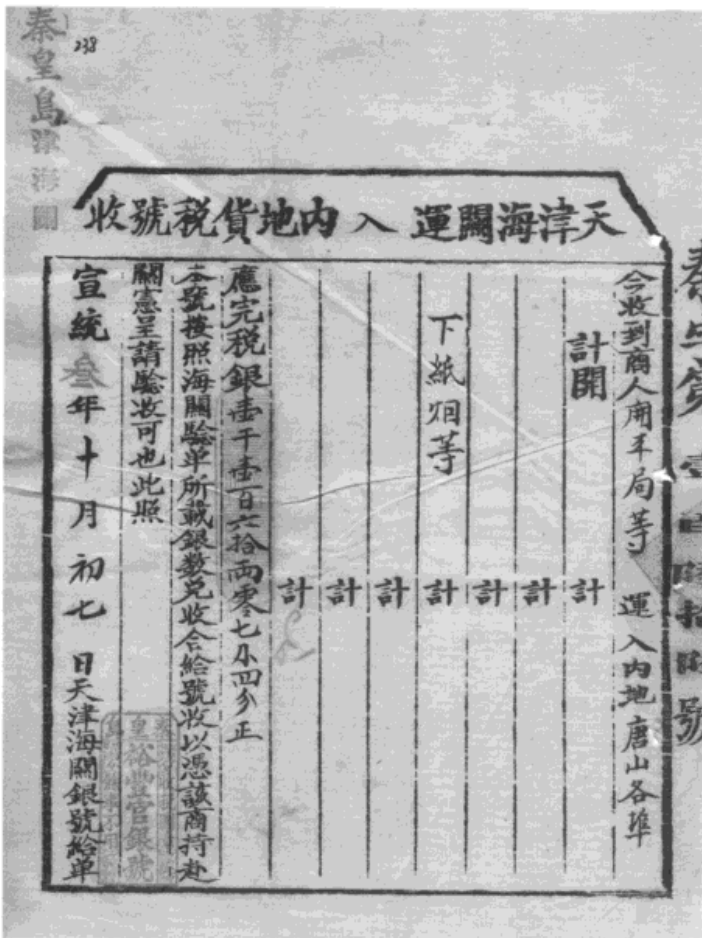 天津海關運入內地貨稅號收
今收到商人開平局等 運入內地唐山各埠
計開 計
計
計
下紙烟等 計
計
計
計
應完稅銀壹千壹百六拾兩零七分四分正
本號接照海關驗单所載銀數兌收合給號收以憑該商持赴
關憲呈請驗收可也此照
宣統叁年十月初七日天津海關銀號給单
秦皇島津海關
238
裕豐官銀號
號